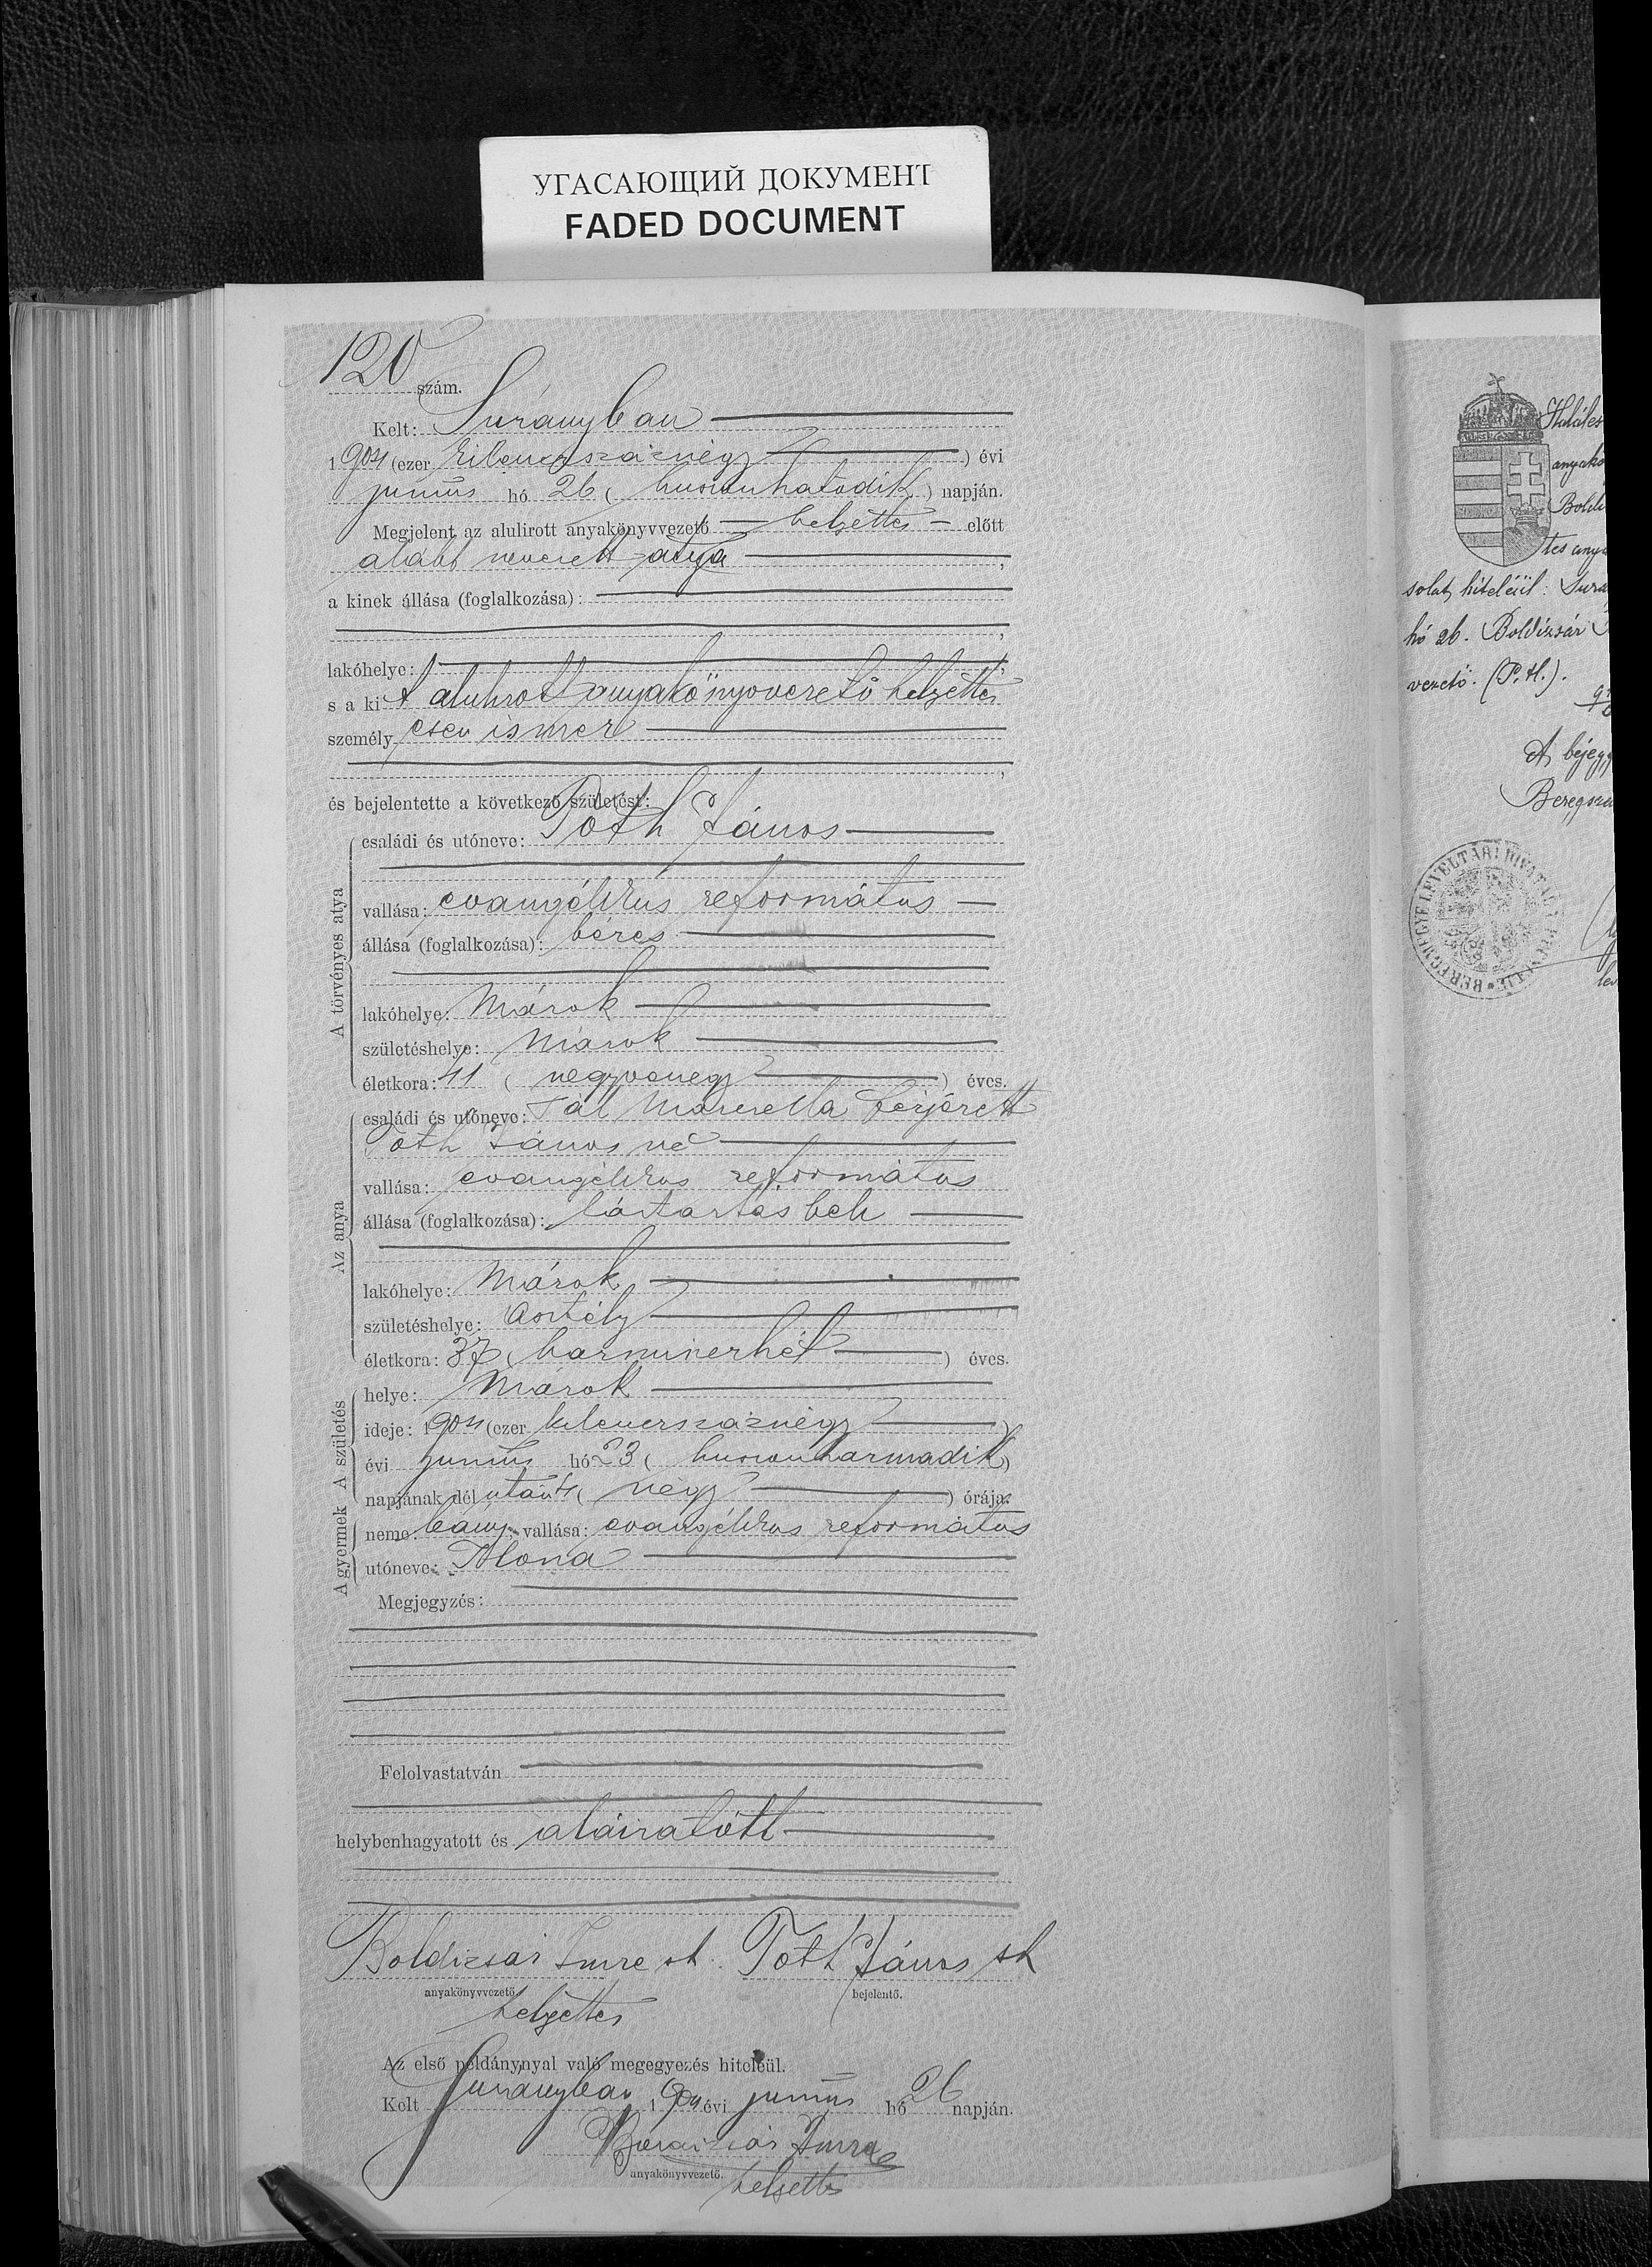 УГАСАЮЩИЙ ДОКУМЕНТ
FADED DOCUMENT
120 szám.
Kelt: Surányban
1904 (ezer kilencszáznégy) évi
junius hó 26 (huszonhatodik) napján.
Megjelent az alulirott anyakönyvvezető helyettes előtt
alább nevezett atya,
a kinek állása (foglalkozása):
lakóhelye:
s a ki t alulirott anyakönyvvezető helyettes
személyesen ismer
és bejelentette a következő születést:
A törvényes atya
családi és utóneve: Tóth János
vallása: evangélikus református
állása (foglalkozása): béres
lakóhelye: Márok
születéshelye: Márok
életkora: 41 (negyvenegy) éves.
Az anya
családi és utóneve: Pál Marcella férjezett
Tóth Jánosné
vallása: evangélikus református
állása (foglalkozása): háztartásbeli
lakóhelye: Márok
születéshelye: Asztély
életkora: 37 (harminchét) éves.
A születés
helye: Márok
ideje: 1904 (ezer kilencszáznégy)
évi junius hó 23 (huszonharmadik)
napjának dél után 4 (négy) órája.
A gyermek
neme: leány vallása: evangélikus református
utóneve: Ilona
Megjegyzés:
Felolvastatván
helybenhagyatott és aláiratott
Boldizsár Imre sk. Tóth János sk
anyakönyvvezető bejelentő.
helyettes
Az első példánynyal való megegyezés hiteléül.
Kelt Surányban 1904 évi junius hó 26 napján.
Boldizsár Imre
anyakönyvvezető.
helyettes
Haláles
anyakö
Boldi
tes anya
solat hiteléül: Surá
hó 26. Boldizsár
vezető. (P.H.).
A bejegy
Beregsza
BEREGMEGYE LEVÉLTÁRI HIVATALA